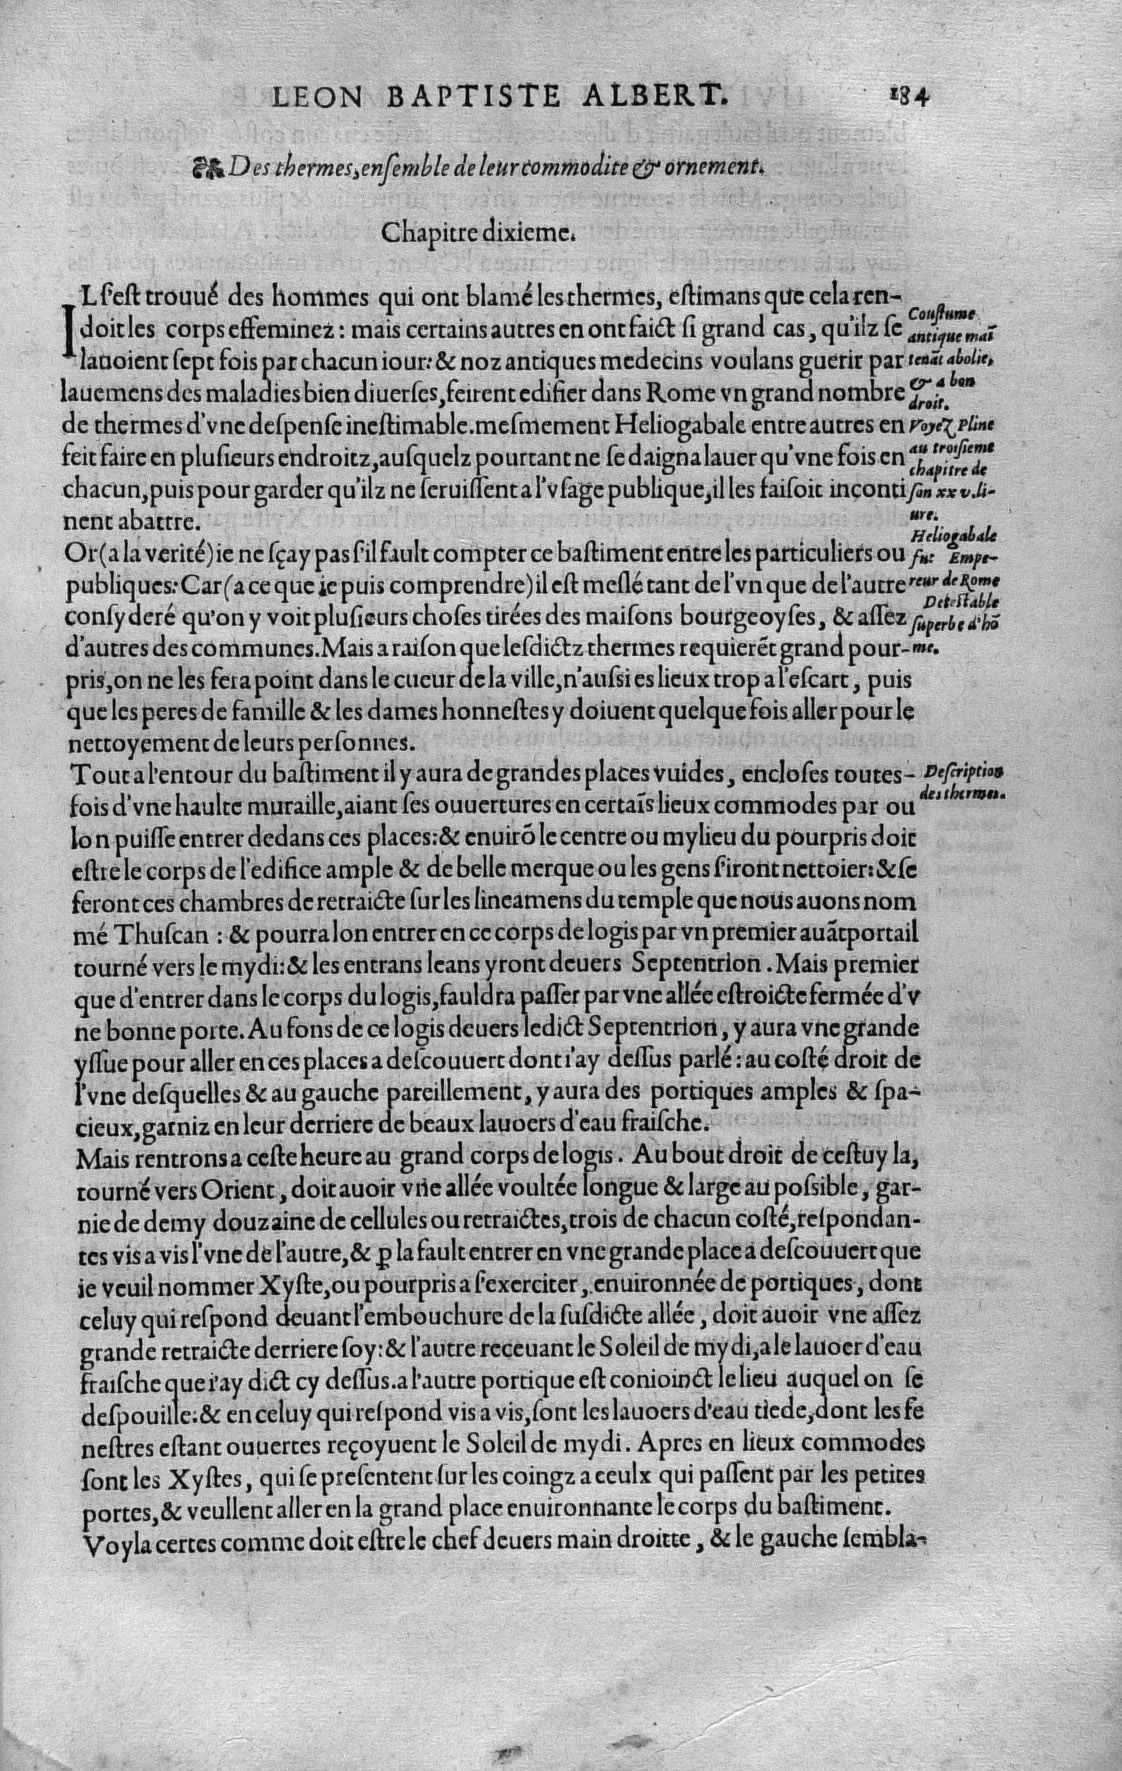 LEON BAPTISTE ALBERT. 184
Des thermes, enſemble de leur commodite & ornement.
Chapitre dixieme.
IL ſ'eſt trouué des hommes qui ont blamé les thermes, eſtimans que cela ren-
doit les corps effeminez: mais certains autres en ont faict ſi grand cas, qu'ilz ſe
lauoient ſept fois par chacun iour: & noz antiques medecins voulans guerir par
lauemens des maladies bien diuerſes, feirent edifier dans Rome vn grand nombre
de thermes d'vne deſpenſe ineſtimable. meſmement Heliogabale entre autres en
feit faire en pluſieurs endroitz, auſquelz pourtant ne ſe daigna lauer qu'vne fois en
chacun, puis pour garder qu'ilz ne ſeruiſſent a l'vſage publique, il les faiſoit inconti
nent abattre.
Or (a la verité) ie ne ſçay pas ſ'il fault compter ce baſtiment entre les particuliers ou
publiques: Car (a ce que ie puis comprendre) il eſt meſlé tant de l'vn que de l'autre
conſyderé qu'on y voit pluſieurs choſes tirées des maiſons bourgeoyſes, & aſſez
d'autres des communes. Mais a raiſon que leſdictz thermes requierẽt grand pour-
pris, on ne les fera point dans le cueur de la ville, n'auſsi es lieux trop a l'eſcart, puis
que les peres de famille & les dames honneſtes y doiuent quelque fois aller pour le
nettoyement de leurs perſonnes.
Tout a l'entour du baſtiment il y aura de grandes places vuides, encloſes toutes-
fois d'vne haulte muraille, aiant ſes ouuertures en certaĩs lieux commodes par ou
lon puiſſe entrer dedans ces places: & enuirõ le centre ou mylieu du pourpris doit
eſtre le corps de l'edifice ample & de belle merque ou les gens ſ'iront nettoier: & ſe
feront ces chambres de retraicte ſur les lineamens du temple que nous auons nom
mé Thuſcan : & pourra lon entrer en ce corps de logis par vn premier auãtportail
tourné vers le mydi: & les entrans leans yront deuers Septentrion. Mais premier
que d'entrer dans le corps du logis, fauldra paſſer par vne allée eſtroicte fermée d'v
ne bonne porte. Au fons de ce logis deuers ledict Septentrion, y aura vne grande
yſſue pour aller en ces places a deſcouuert dont i'ay deſſus parlé: au coſté droit de
l'vne deſquelles & au gauche pareillement, y aura des portiques amples & ſpa-
cieux, garniz en leur derriere de beaux lauoers d'eau fraiſche.
Mais rentrons a ceſte heure au grand corps de logis. Au bout droit de ceſtuy la,
tourné vers Orient, doit auoir vne allée voultée longue & large au poſsible, gar-
nie de demy douzaine de cellules ou retraictes, trois de chacun coſté, reſpondan-
tes vis a vis l'vne de l'autre, & ꝑ la fault entrer en vne grande place a deſcouuert que
ie veuil nommer Xyſte, ou pourpris a ſ'exerciter, enuironnée de portiques, dont
celuy qui reſpond deuant l'embouchure de la ſuſdicte allée, doit auoir vne aſſez
grande retraicte derriere ſoy: & l'autre receuant le Soleil de mydi, a le lauoer d'eau
fraiſche que i'ay dict cy deſſus. a l'autre portique eſt conioinct le lieu auquel on ſe
deſpouille: & en celuy qui reſpond vis a vis, ſont les lauoers d'eau tiede, dont les fe
neſtres eſtant ouuertes reçoyuent le Soleil de mydi. Apres en lieux commodes
ſont les Xyſtes, qui ſe preſentent ſur les coingz a ceulx qui paſſent par les petites
portes, & veullent aller en la grand place enuironnante le corps du baſtiment.
Voyla certes comme doit eſtre le chef deuers main droitte, & le gauche ſembla-
Couſtume
antique mai̅
tenãt abolie,
& a bon
droit.
Voyez Pline
au troiſieme
chapitre de
ſon xxv. li-
ure.
Heliogabale
fut Empe-
reur de Rome
Deteſtable
ſuperbe d'hõ
me.
Deſcription
des thermes.